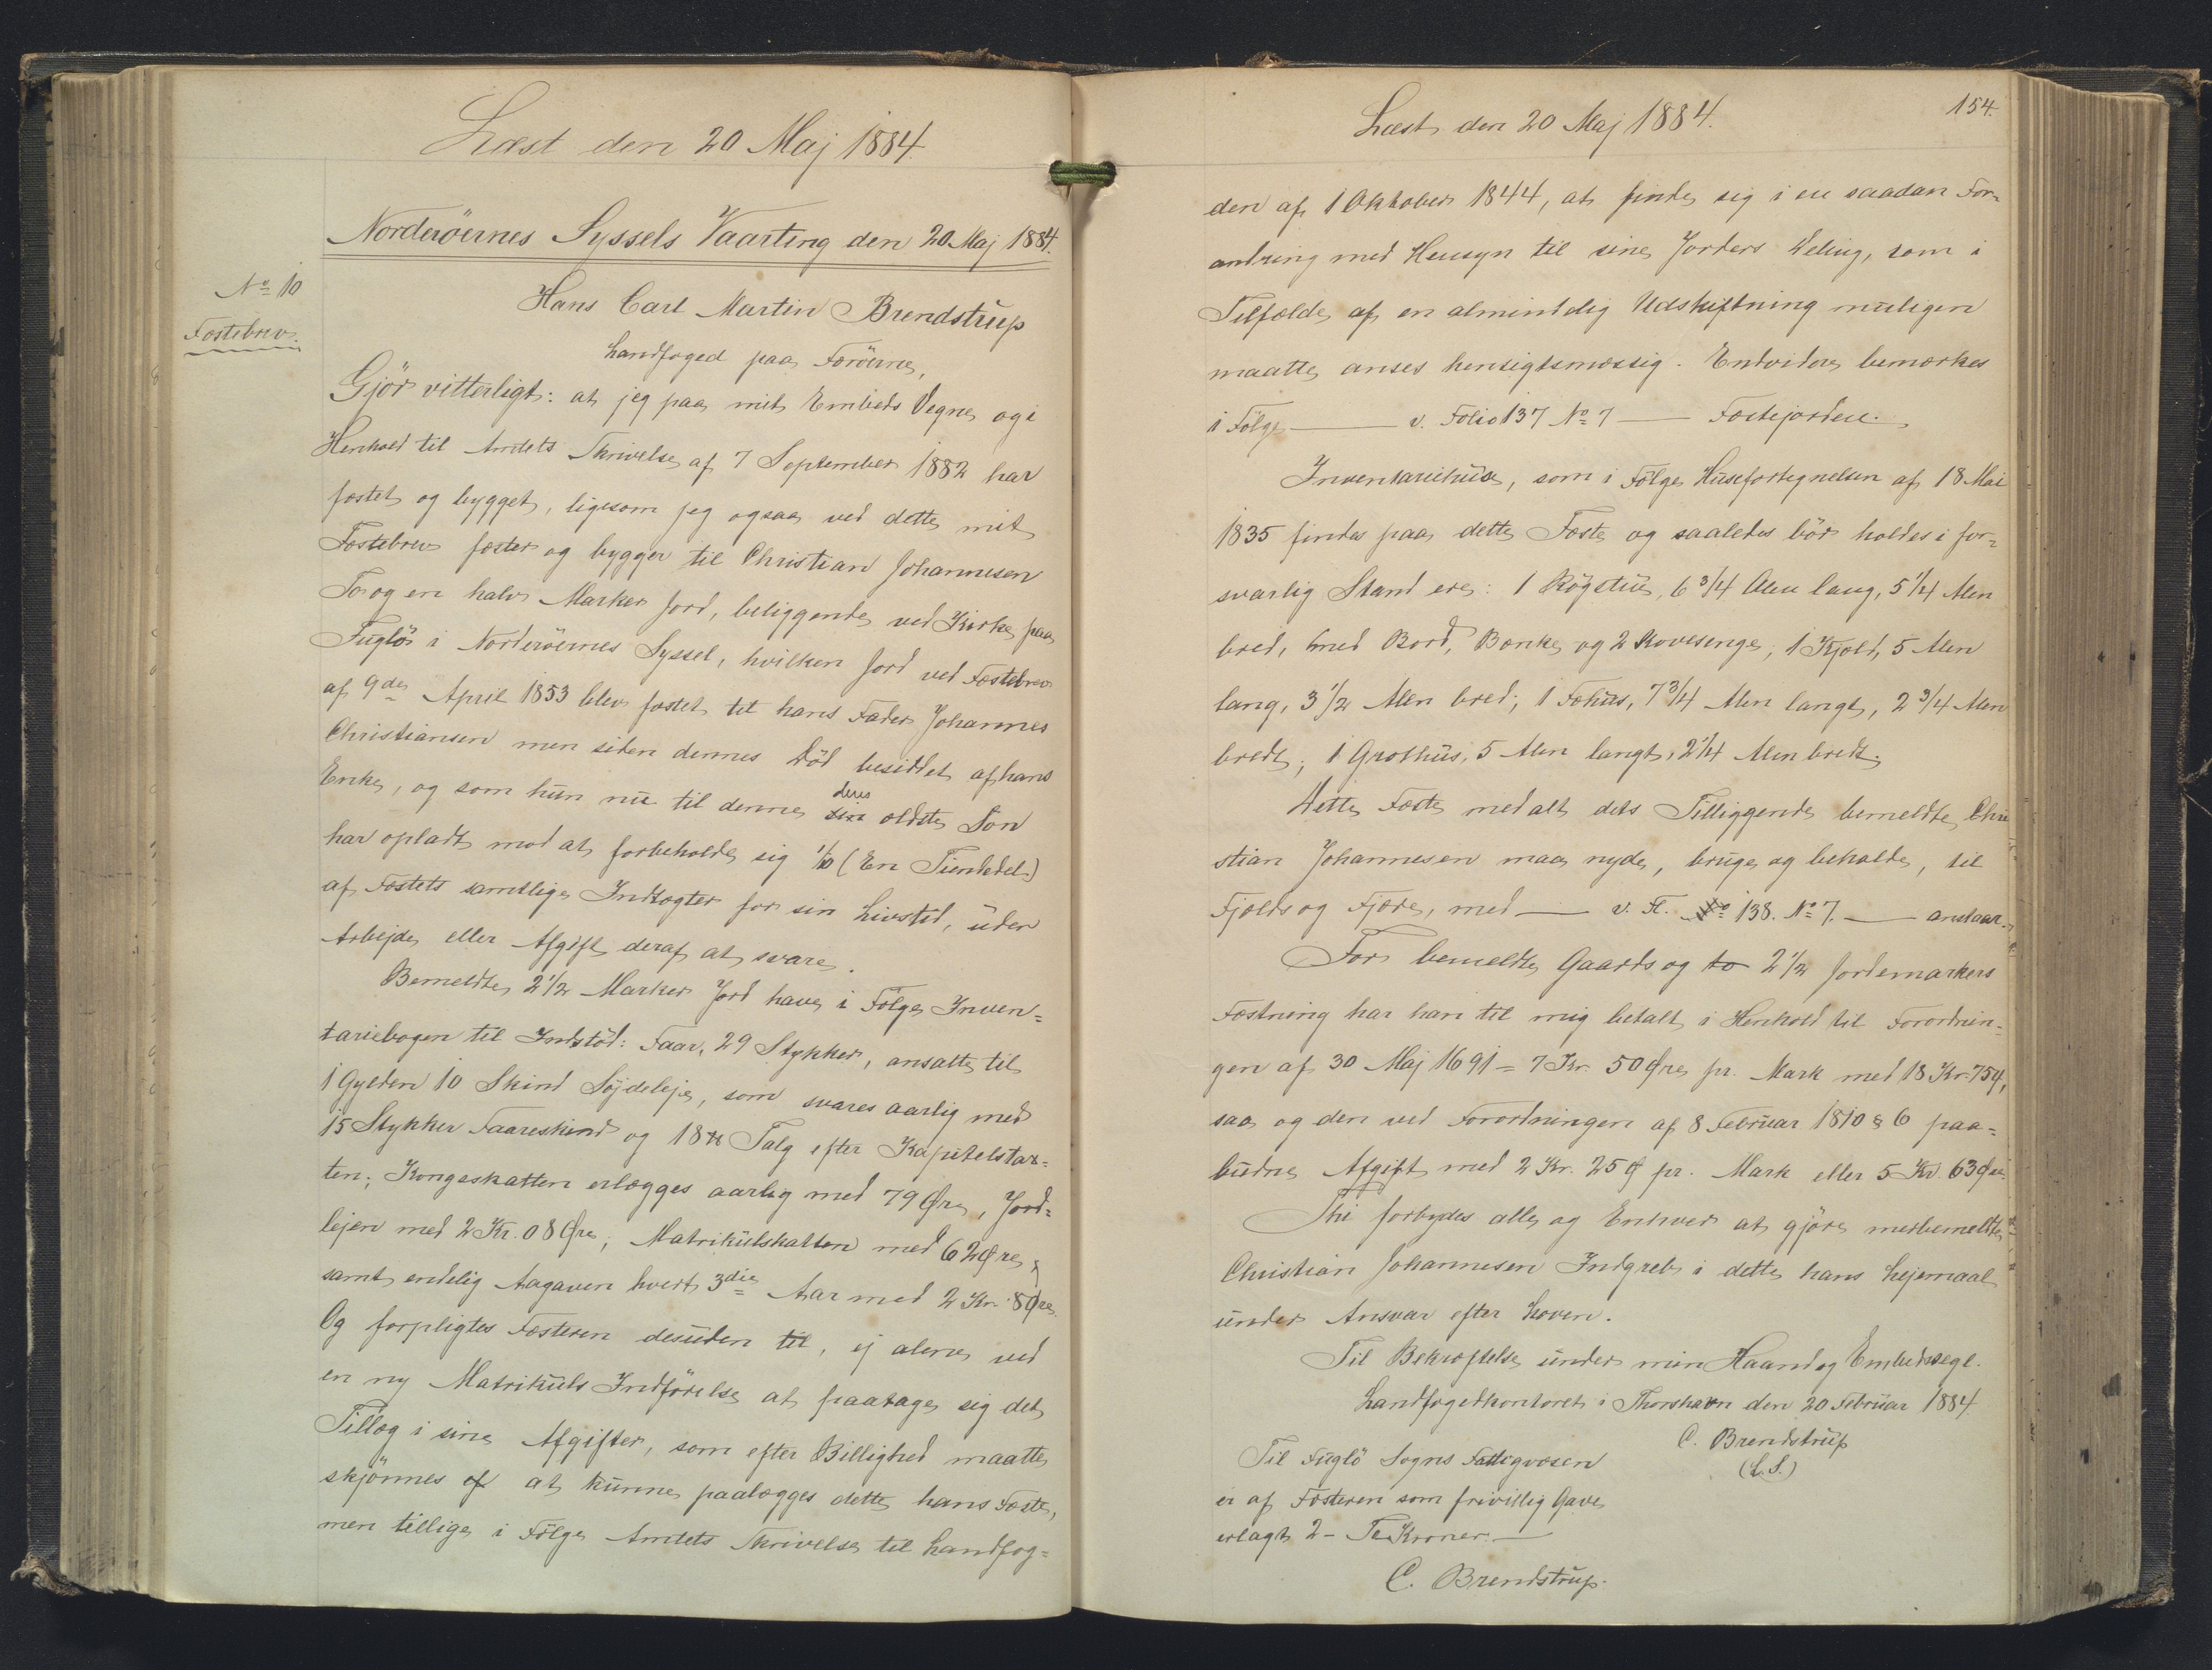 Læst den 20 Maj 1884.
Norderöernes Syssels Vaarting den 20 Maj 1884.
No 10
Fæstebrev.
Hans Carl Martin Brendstrup
Landfoged paa Færöerne,
Gjör vitterligt: at jeg paa mit Embeds Vegne og i
Henhold til Amtets Skrivelse af 7 September 1882 har
fæstet og bygget, ligesom jeg ogsaa ved dette mit
Fæstebrev fæster og bygger til Christian Johannesen
To og en halv Marker Jord, beliggende ved Kirke paa
Fuglö i Norderöernes Syssel, hvilken Jord ved Fæstebrev
af 9de April 1853 blev fæstet til hans Fader Johannes
Christiansen men siden dennes Död besiddet af hans
Enke, og som hun nu til denne ~~sin~~ deres ældste Sön
har opladt mod at forbeholde sig 1/10 (En Tiendedel)
af Fæstets samtlige Indtægter for sin Livstid, uden
Arbejde eller Afgift deraf at svare.
Bemeldte 2 1/2 Marker Jord have i Fölge Inven=
tariebogen til Indstöd: Faar, 29 Stykker, ansatte til
1 Gylden 10 Skind Söjdeleje, som svares aarlig med
15 Stykker Faareskind og 18 ℔ Talg efter Kapitelstax=
ten; Kongeskatten erlægges aarlig med 79 Øre, Jord=
lejen med 2 Kr. 08 Øre, Matrikülskatten med 62 Øre,
samt endelig Aagaven hvert 3die Aar med 2 Kr. 8 Øre.
Og forpligtes Fæsteren desuden ~~til~~, ej alene ved
en ny Matriküls Indförelse at paatage sig det
Tillæg i sine Afgifter, som efter Billighed maatte
skjönnes ~~af~~ at kunne paalægges dette hans Fæste,
men tillige i Fölge Amtets Skrivelse til Landfog=
Læst den 20 Maj 1884.
154.
den af 1 Oktober 1844, at finde sig i en saadan For=
andring med Hensyn til sine Jorders Deling, som i
Tilfælde af en almindelig Udskiftning muligen
maatte anses hensigtsmæssig. Endvidere bemærkes
i Fölge ——— v. Folio 137 No 7 —— Fæstejorden.
Inventariehuse, som i Fölge Husefortegnelsen af 18 Mai
1835 findes paa dette Fæste og saaledes bör holdes i for=
svarlig Stand ere: 1 Rögstue, 6 3/4 Alen lang, 5 1/4 Alen
bred, med Bord, Bænke og 2 Kovesenge, 1 Kjeld, 5 Alen
lang, 3 1/2 Alen bred; 1 Fæhus, 7 3/4 Alen langt, 2 3/4 Alen
bredt; 1 Grothus, 5 Alen langt, 2 1/4 Alen bredt.
Dette Fæste med alt dets Tilliggende bemeldte Chri
stian Johannesen maa nyde, bruge og beholde, til
Fjelds og Fjære, med —— v. Fl. ~~No~~ 138. No 7. —— anstaar.
For bemeldte Gaards og ~~to~~ 2 1/2 Jordemarkers
Fæstning har han til mig betalt i Henhold til Forordnin=
gen af 30 Maj 1691 = 7 Kr. 50 Øre pr. Mark med 18 Kr. 75 Ø,
saa og den ved Forordningen af 8 Februar 1810 § 6 paa=
budne Afgift med 2 Kr. 25 Ø pr. Mark eller 5 Kr. 63 Øre.
Thi forbydes alle og Enhver at gjöre merbemeldte
Christian Johannesen Indgreb i dette hans Lejemaal
under Ansvar efter Loven.
Til Bekræftelse under min Haand og Embedssegl.
Landfogedkontoret i Thorshavn den 20 Februar 1884.
C. Brendstrup
(L.S.)
Til Fuglö Sogns Fattigvæsen
er af Fæsteren som frivillig Gave
erlagt 2 – To Kroner. —
C. Brendstrup.